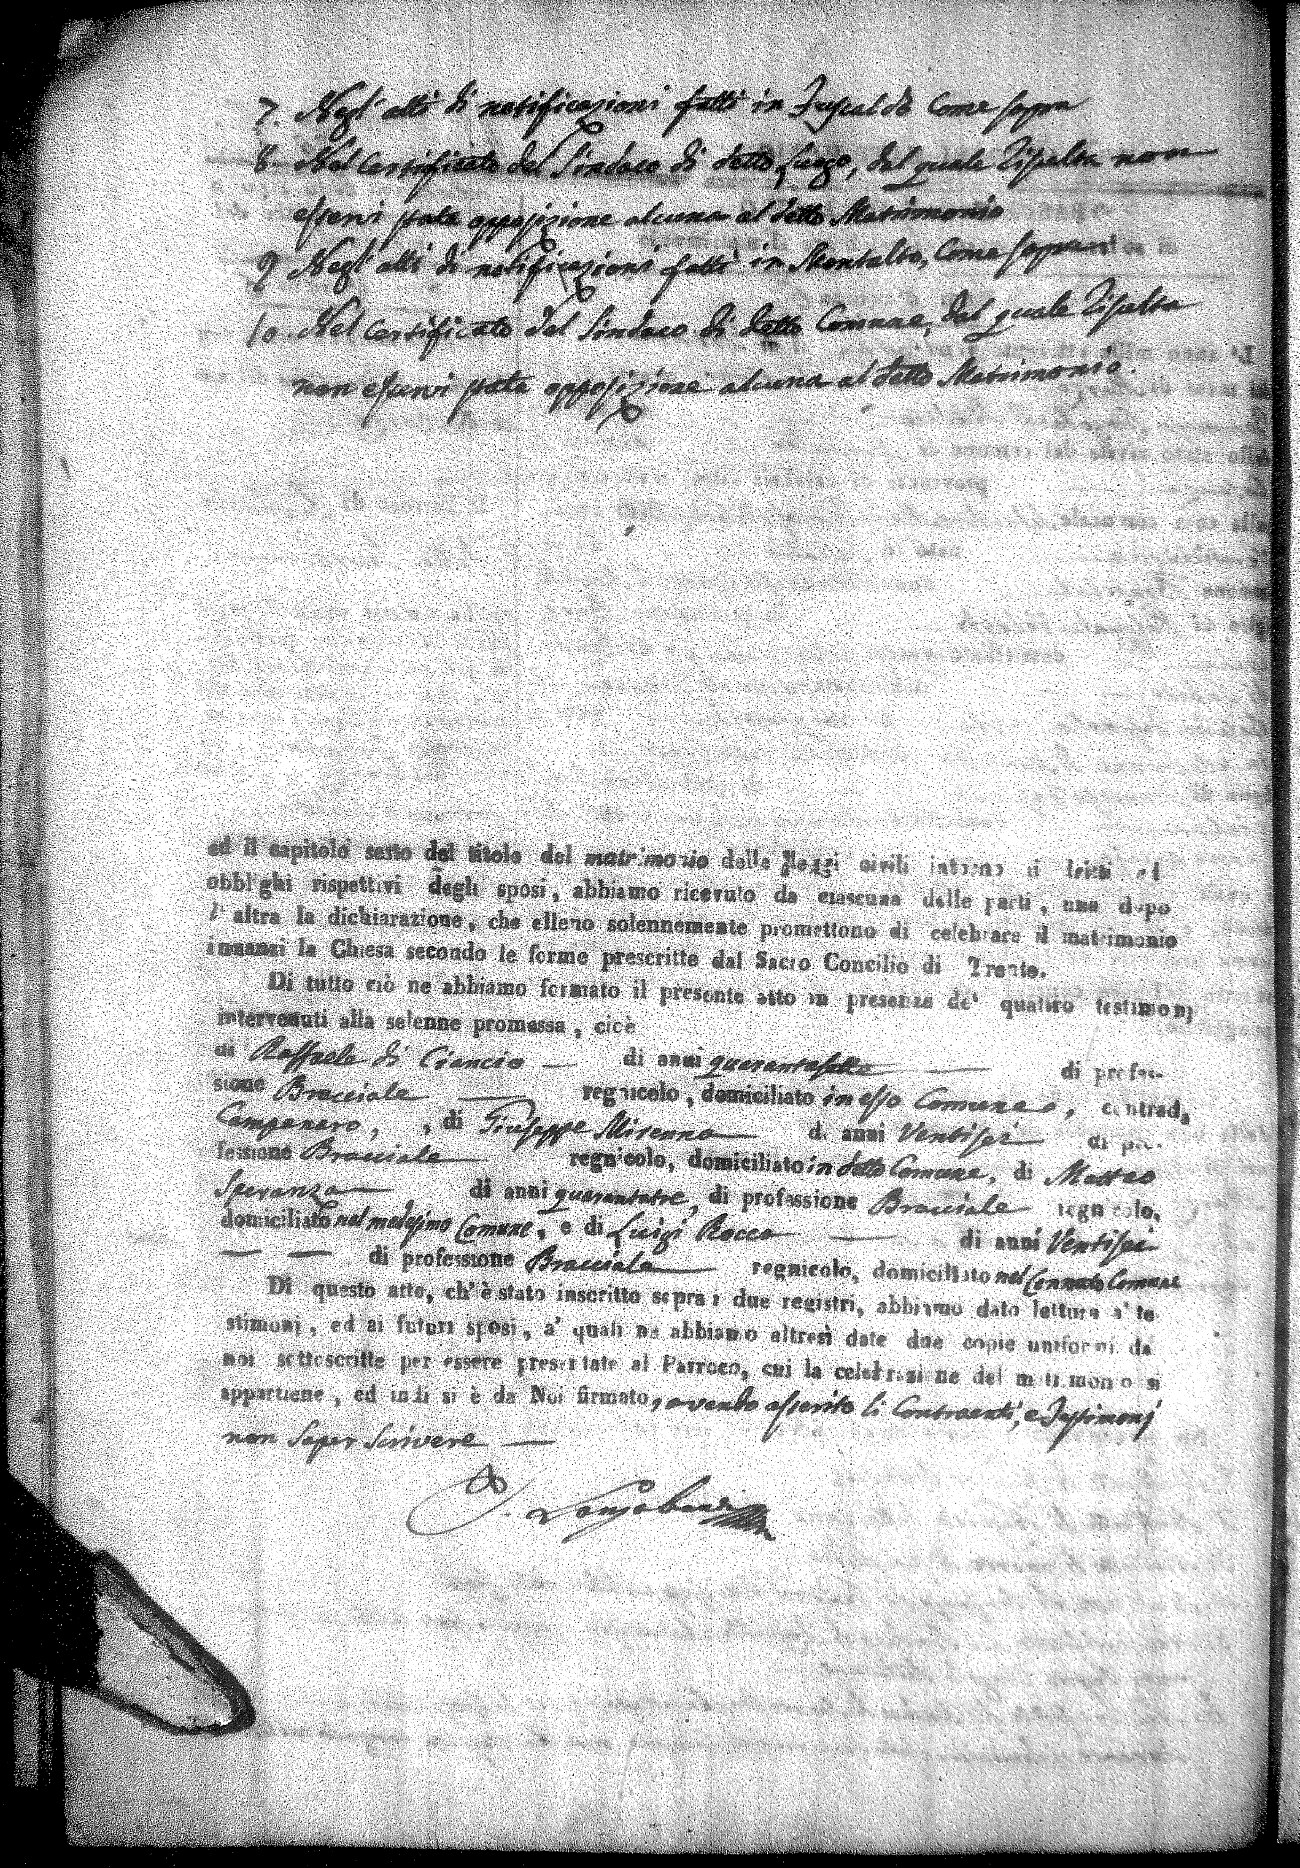 7. Negl' atti di notificazioni fatti in Fuscaldo Come sopra
8. Nel Certificato del Sindaco di detto Luogo, dal quale Risulta non
esservi stata opposizione alcuna al detto Matrimonio
9. Negl' atti di notificazioni fatti in Montalto, Come sopra
10. Nel Certificato del Sindaco di detto Comune, dal quale Risulta
non esservi stata opposizione alcuna al detto Matrimonio.
ed il capitolo sesto del titolo del matrimonio delle leggi civili intorno ai dritti ed
obblighi rispettivi degli sposi, abbiamo ricevuto da ciascuna delle parti, una dopo
l' altra la dichiarazione, che elleno solennemente promettono di celebrare il matrimonio
innanzi la Chiesa secondo le forme prescritte dal Sacro Concilio di Trento.
Di tutto ciò ne abbiamo formato il presente atto in presenza de' quattro testimonj
intervenuti alla solenne promessa, cioè
di Raffaele di Ciancio di anni quarantasette di profes-
sione Bracciale regnicolo, domiciliato in esso Comune, contrada
Campanaro, di Giuseppe Mirenna di anni Ventisei di pro-
fessione Bracciale regnicolo, domiciliato in detto Comune, di Matteo
Speranza di anni quarantatre, di professione Bracciale regnicolo,
domiciliato nel medesimo Comune, e di Luigi Rocco di anni Ventisei
di professione Bracciale regnicolo, domiciliato nel Cennato Comune
Di questo atto, ch' è stato inscritto sopra i due registri, abbiamo dato lettura a' te-
stimonj, ed ai futuri sposi, a' quali ne abbiamo altresì date due copie uniformi da
noi sottoscritte per essere presentate al Parroco, cui la celebrazione del matrimonio si
appartiene, ed indi si è da Noi firmato, avendo asserito li Contraenti, e Testimonj
non saper scrivere